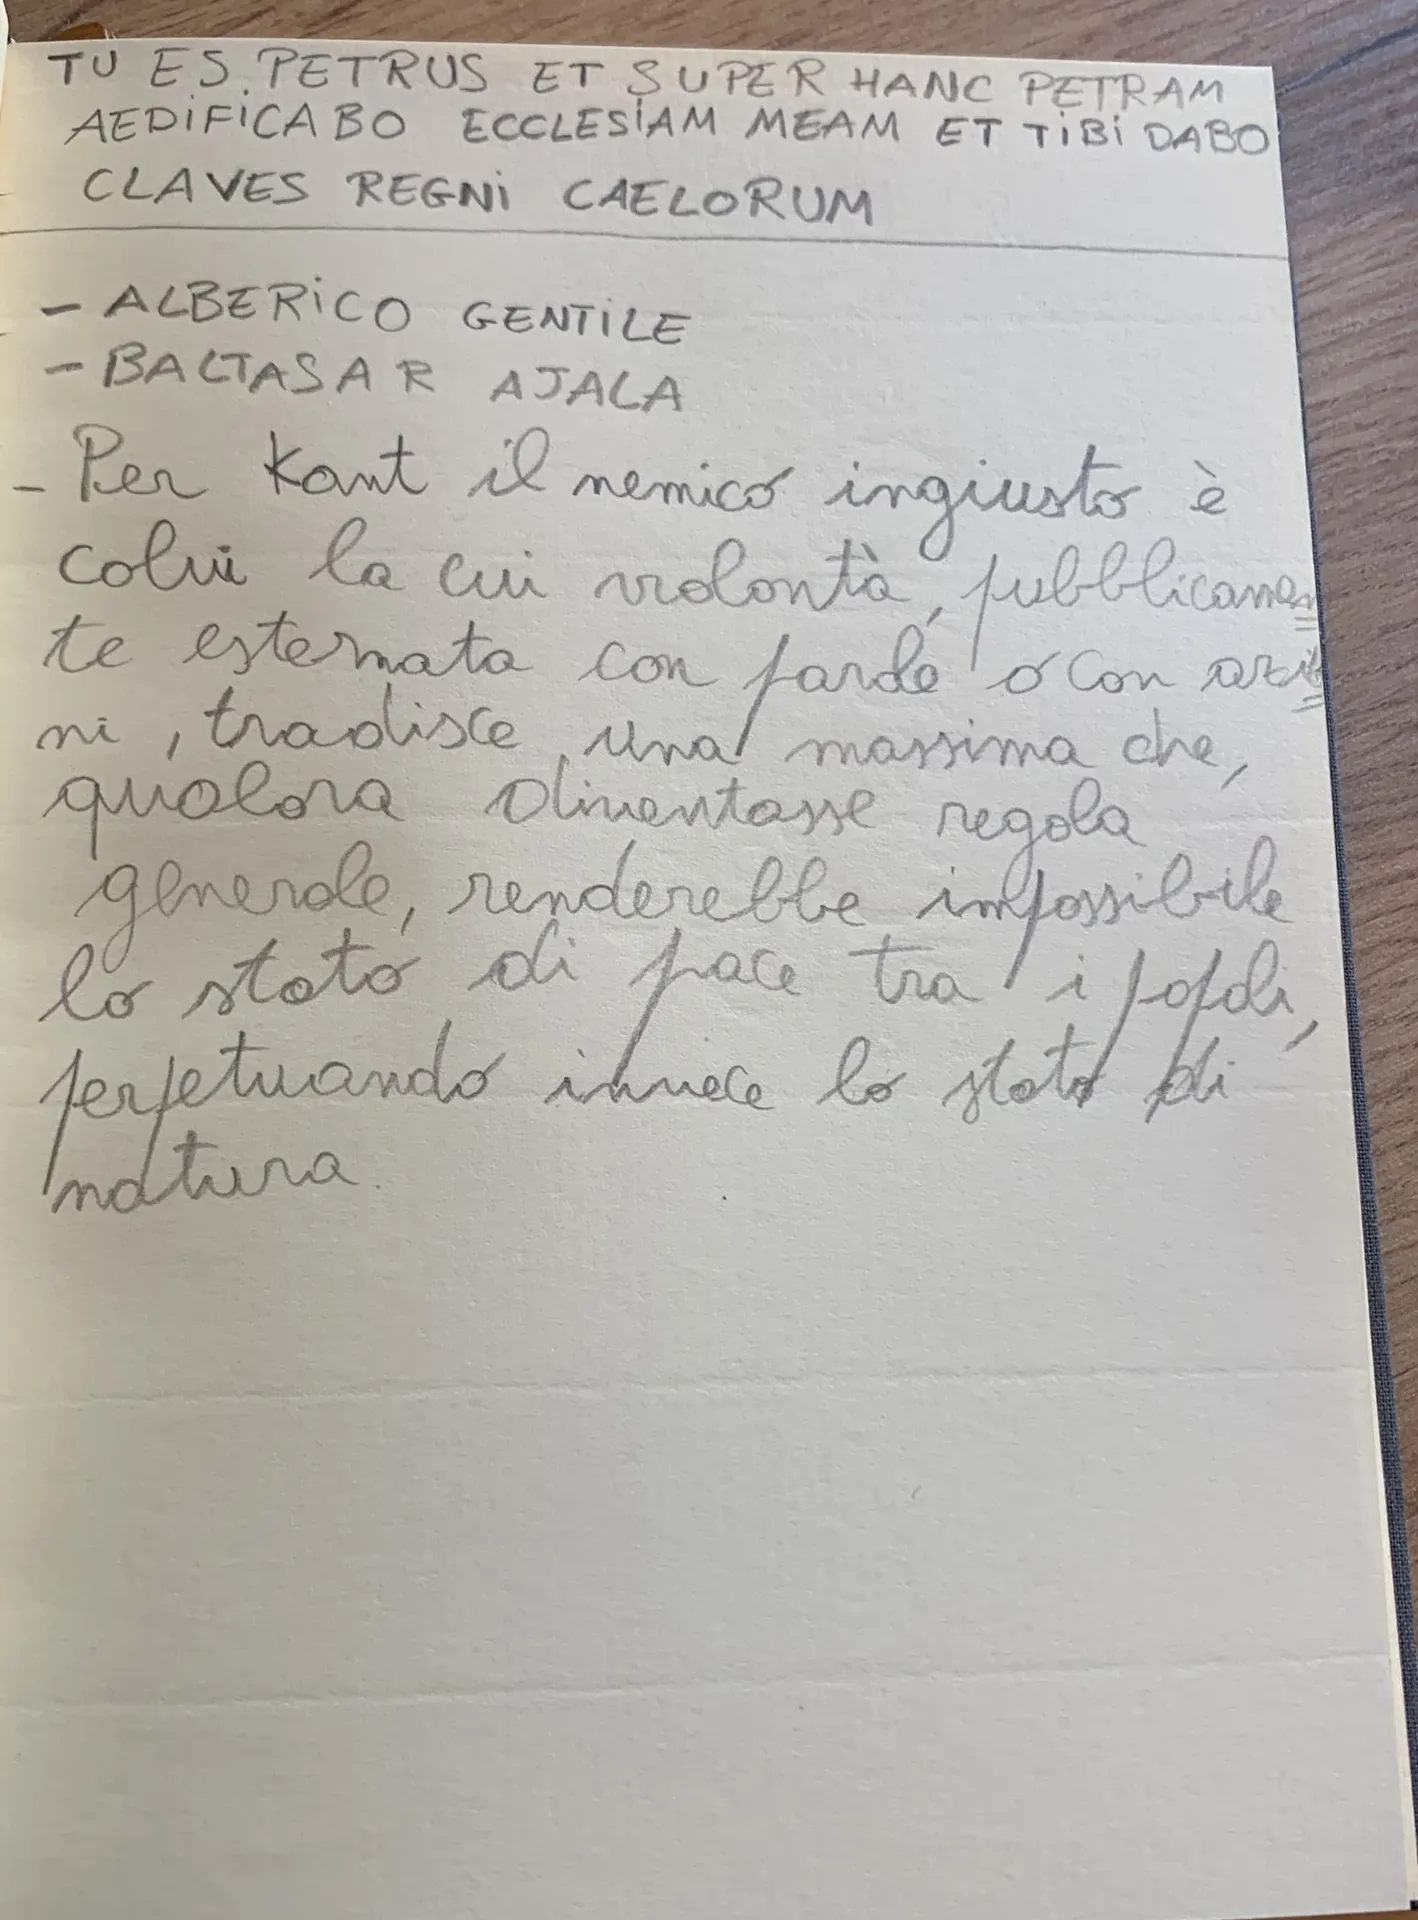 TU ES PETRUS ET SUPER HANC PETRAM
AEDIFICABO ECCLESIAM MEAM ET TIBI DABO
CLAVES REGNI CAELORUM
- ALBERICO GENTILE
- BALTASAR AJALA
- Per Kant il nemico ingiusto è
colui la cui volontà, pubblicamen
te esternata con parole o con azio
ni, tradisce una massima che,
qualora diventasse regola
generale, renderebbe impossibile
lo stato di pace tra i popoli,
perpetuando invece lo stato di
natura.